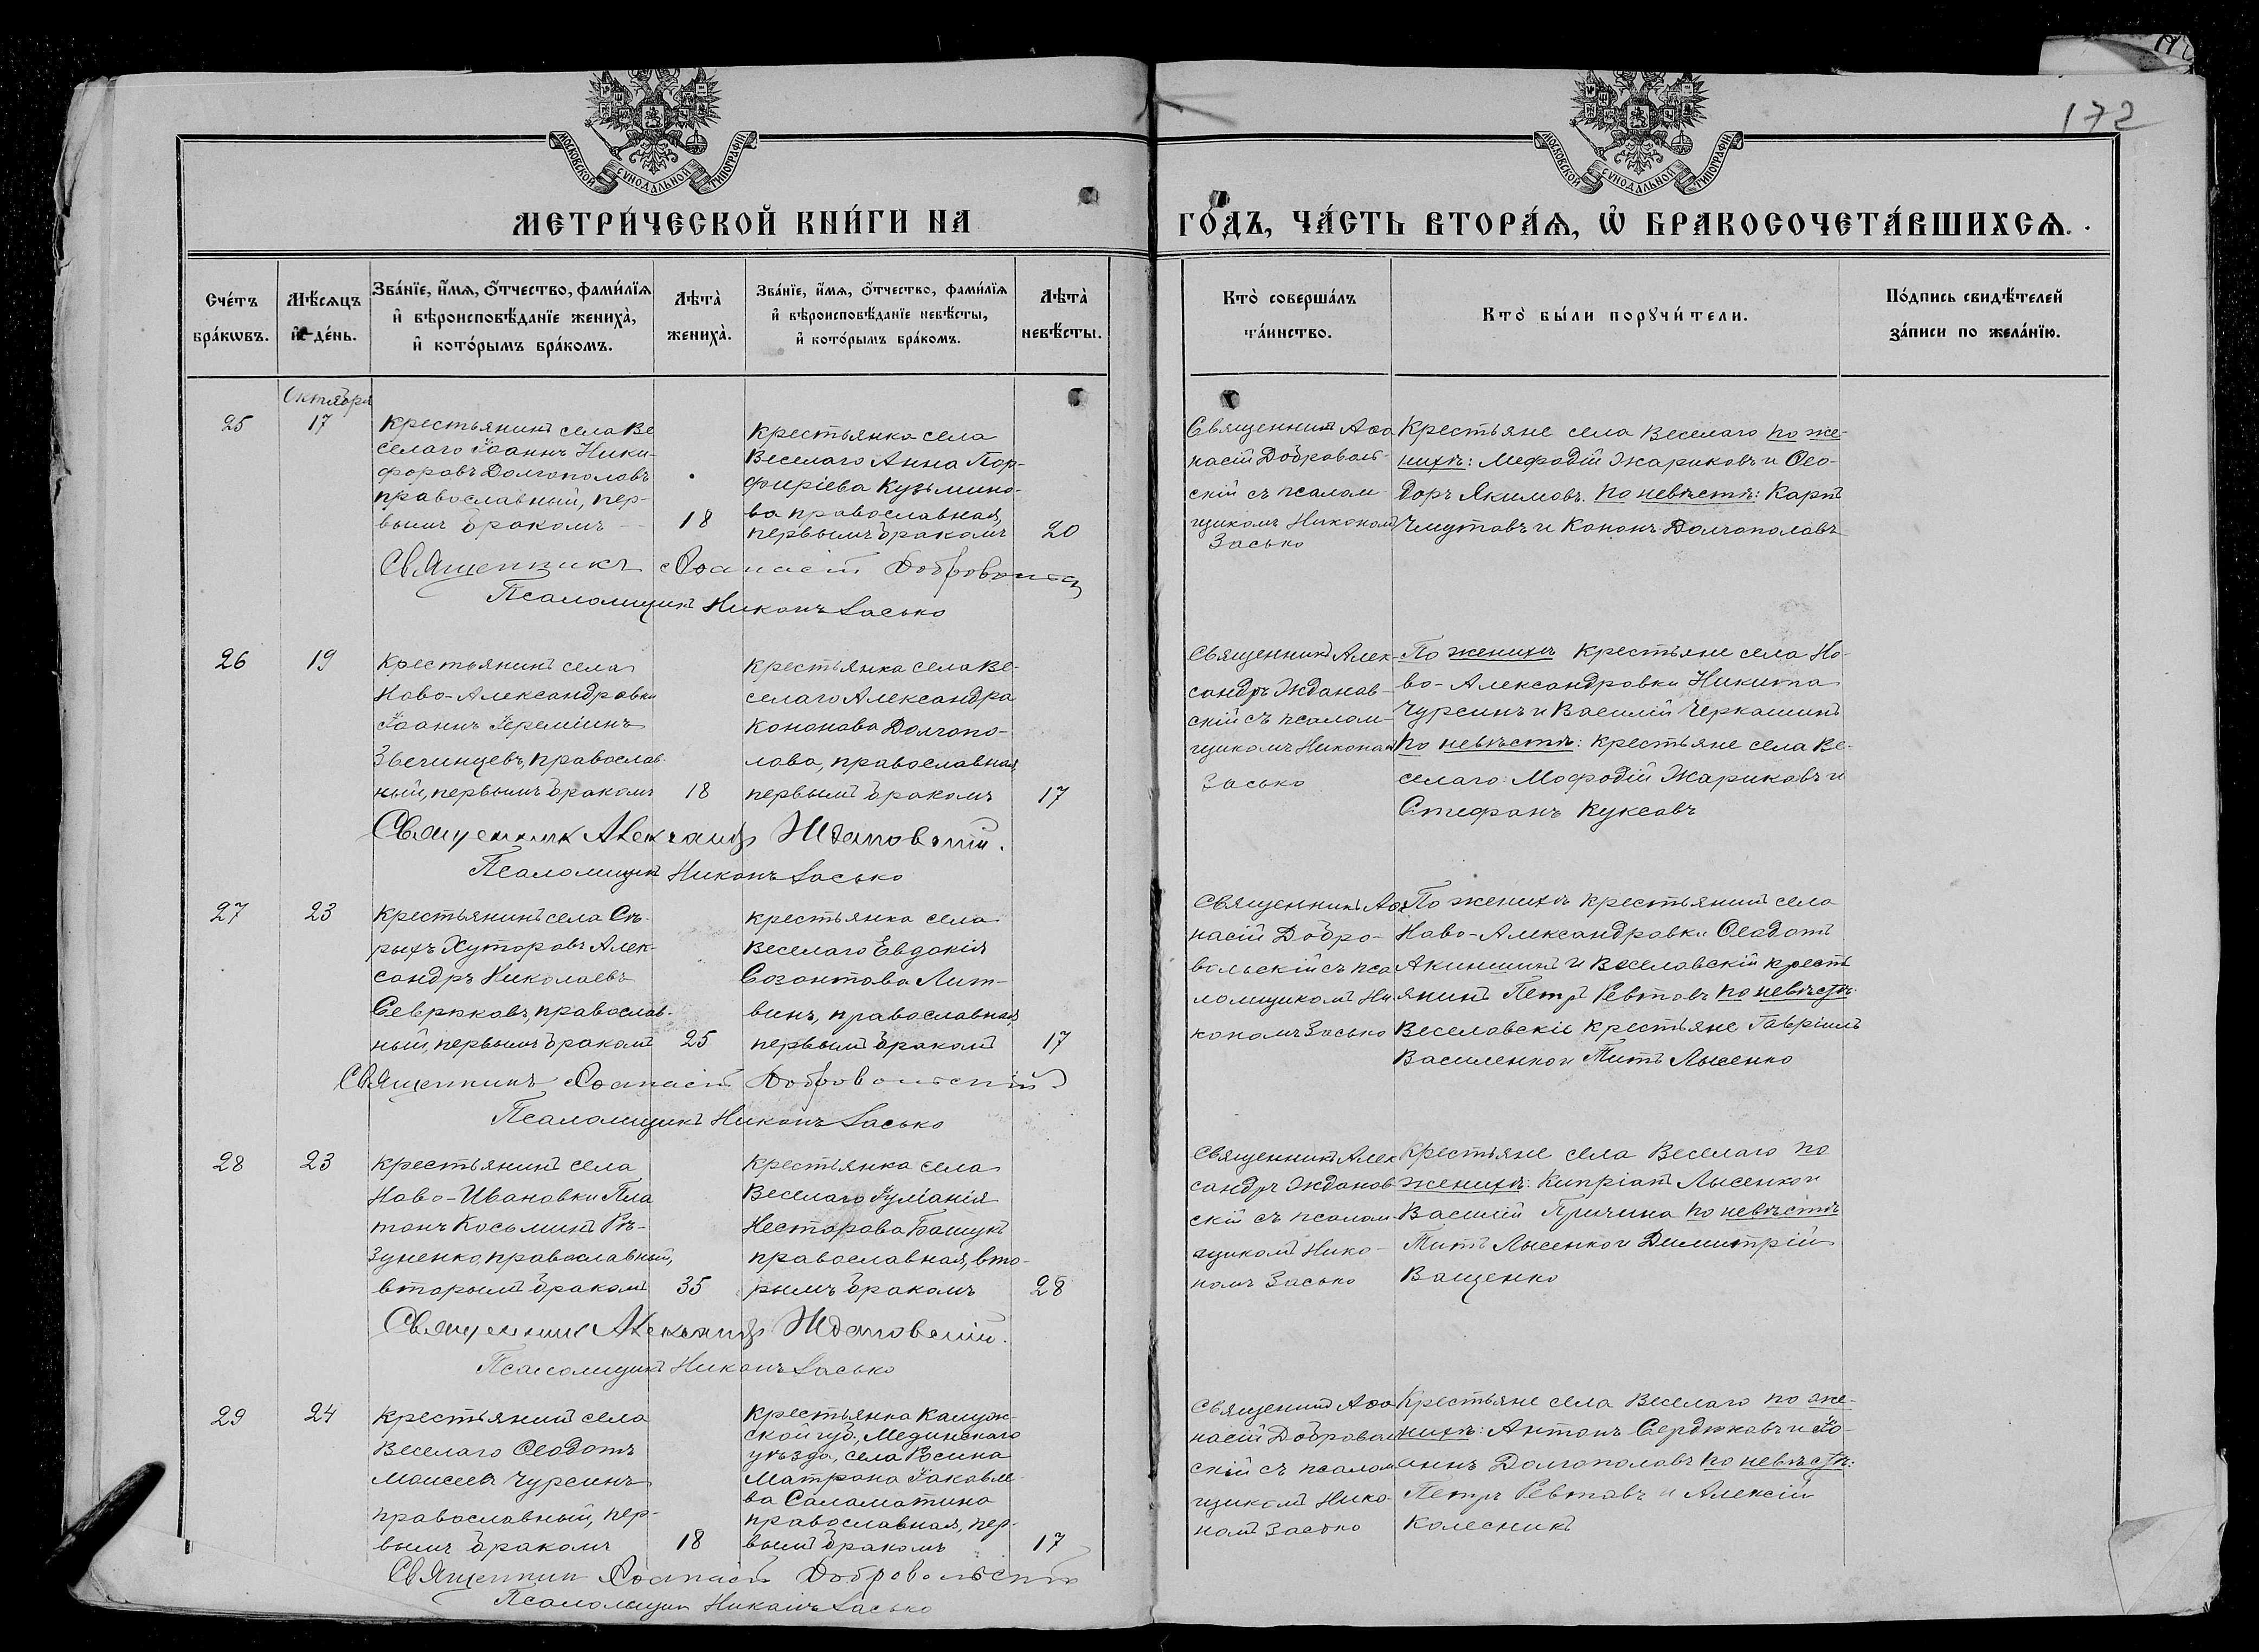 172
МОСКОВСКОЙ СѴНОДАЛЬНОЙ ТИПОГРАФІИ
МОСКОВСКОЙ СѴНОДАЛЬНОЙ ТИПОГРАФІИ
МЕТРИ́ЧЕСКОЙ КНИ́ГИ НА
ГО́ДЪ, ЧА́СТЬ ВТОРА́Ѧ, Ѡ҆ БРАКОСОЧЕТА́ВШИХСѦ.
Сче́тъ
бра́кѡвъ.
Мѣ́сѧцъ
и҆ де́нь.
Зва́нїе, и҆́мѧ, ѻ҆́тчество, фами́лїѧ
и҆ вѣроисповѣ́данїе жениха̀,
и҆ кото́рымъ бра́комъ.
Лѣта̀
жениха̀.
Зва́нїе, и҆́мѧ, ѻ҆́тчество, фами́лїѧ
и҆ вѣроисповѣ́данїе невѣ́сты,
и҆ кото́рымъ бра́комъ.
Лѣта̀
невѣ́сты.
Кто̀ соверша́лъ
та́инство.
Кто̀ бы́ли порꙋчи́тели.
По́дпись свидѣ́телей
за́писи по жела́нїю.
Октября
25
17
Крестьянинъ села Ве
селаго Іоаннъ Ники-
форовъ Долгополовъ
православный, пер-
вымъ бракомъ
18
Крестьянка села
Веселаго Анна Пор-
фиріева Кузьмино-
ва православная,
первымъ бракомъ
20
Священникъ Аѳа
насій Добровол-
скій съ псалом-
щикомъ Никономъ
Засько
Крестьяне села Веселаго по же-
нихѣ: Мефодій Жариковъ и Ѳео-
доръ Якимовъ. По невѣстѣ: Карпъ
Чмутовъ и Кононъ Долгополовъ
Священникъ Аѳанасій Добровольскій
Псаломщикъ Никонъ Засько
26
19
Крестьянинъ села
Ново-Александровки
Іоаннъ Іереміинъ
Звечинцевъ, православ-
ный, первымъ бракомъ
18
Крестьянка села Ве-
селаго Александра
Кононова Долгопо-
лова, православная,
первымъ бракомъ
17
Священникъ Алек-
сандръ Жданов-
скій съ псалом-
щикомъ Никономъ
Засько
По женихѣ Крестьяне села Но-
во-Александровки Никита
Чурсинъ и Василій Черкашинъ
По невѣстѣ: Крестьяне села Ве-
селаго: Мефодій Жариковъ и
Стефанъ Куксовъ
Священникъ Александръ Ждановскій.
Псаломщикъ Никонъ Засько
27
23
Крестьянинъ села Сѣ-
рыхъ Хуторовъ Алек-
сандръ Николаевъ
Севрюковъ, православ-
ный, первымъ бракомъ
25
Крестьянка села
Веселаго Евдокія
Созонтова Лит-
винъ, православная,
первымъ бракомъ
17
Священникъ Аѳа
насій Добро-
вольскій съ пса
ломщикомъ Ни
кономъ Засько
По женихѣ крестьянинъ села
Ново-Александровки Ѳеодотъ
Акиншинъ и Веселовскій кресть
янинъ Петръ Ревтовъ по невѣстѣ
Веселовскіе крестьяне Гавріилъ
Василенко и Титъ Лысенко
Священникъ Аѳанасій Добровольскій
Псаломщикъ Никонъ Засько
28
23
Крестьянинъ села
Ново-Ивановки Пла
тонъ Косьминъ Рѣ-
зуненко, православный,
вторымъ бракомъ
35
Крестьянка села
Веселаго Іуліанія
Несторова Башукъ
православная, вто-
рымъ бракомъ
28
Священникъ Алек
сандръ Жданов
скій съ псалом
щикомъ Нико-
номъ Засько
Крестьяне села Веселаго по
женихѣ: Кипріанъ Лысенко и
Василій Причина по невѣстѣ
Титъ Лысенко и Димитрій
Ващенко
Священникъ Александръ Ждановскій.
Псаломщикъ Никонъ Засько
29
24
Крестьянинъ села
Веселаго Ѳеодотъ
Моисеевъ Чурсинъ
православный, пер-
вымъ бракомъ
18
Крестьянка Калуж-
ской губ., Мединскаго
уѣзда, села Росина
Матрона Іаковле-
ва Саламатина
православная, пер-
вымъ бракомъ
17
Священникъ Аѳа
насій Доброволь
скій съ псалом
щикомъ Нико-
номъ Засько
Крестьяне села Веселаго по же-
нихѣ: Антонъ Сердюковъ и Іо-
аннъ Долгополовъ по невѣстѣ:
Петръ Ревтовъ и Алексій
Колесникъ
Священникъ Аѳанасій Добровольскій
Псаломщикъ Никонъ Засько